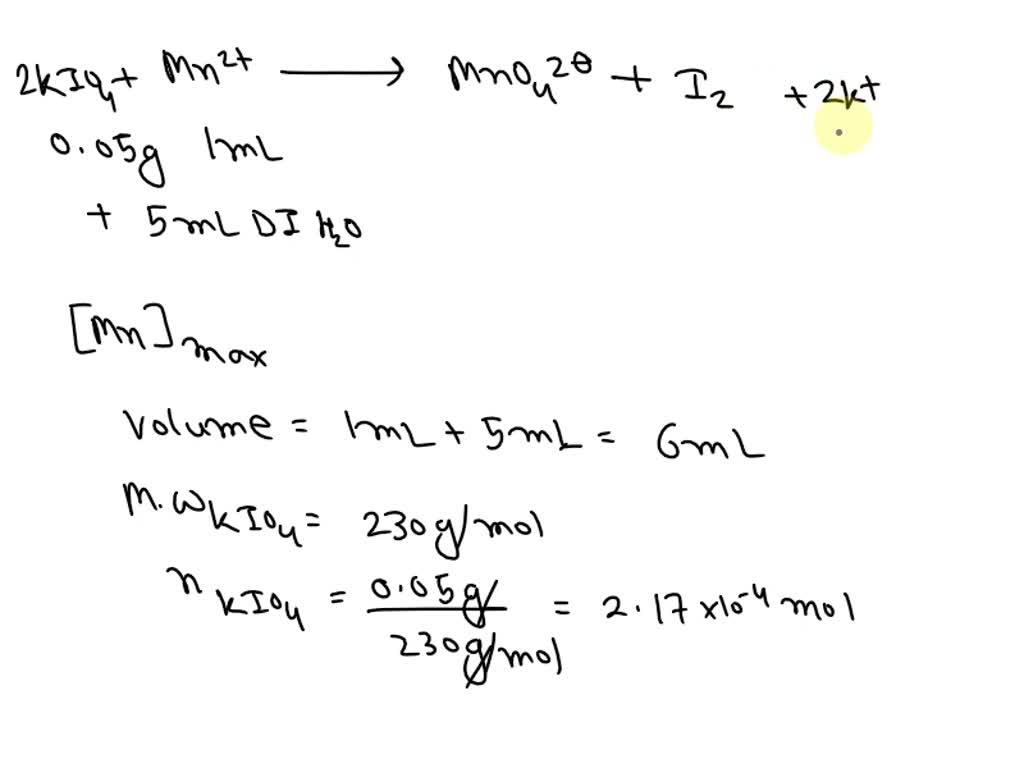 2KIO₄ + Mn²⁺ ⟶ MnO₄²⊖ + I₂ + 2K⁺
0.05g 1mL
+ 5mL DI H₂O
[Mn]max
Volume = 1mL + 5mL = 6mL
M.W KIO₄ = 230g/mol
n KIO₄ = 0.05g / 230g/mol = 2.17 x10⁻⁴ mol